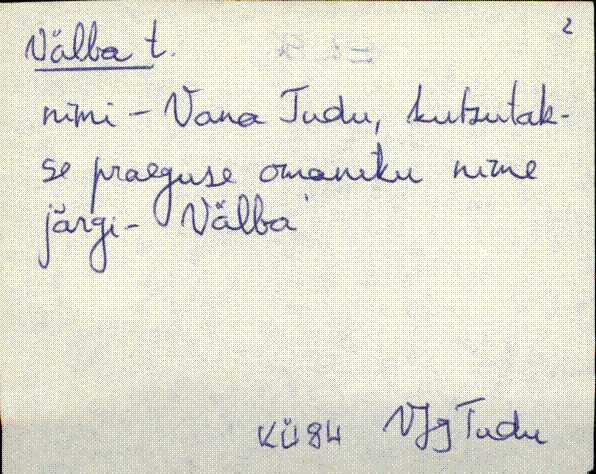 2
Välba t.
nimi - Vana Tudu, kutsutak-
se praeguse omaniku nime
järgi - Välba
KÜ 84 VJg Tudu